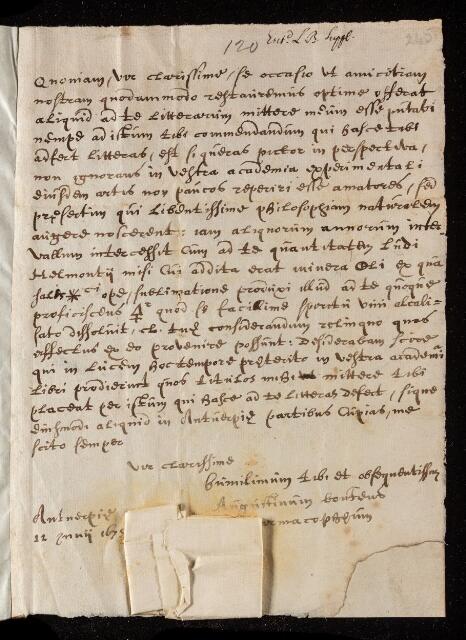 120 Entd L B Suppl. 245
Quoniam, vir clarissime, se occasio ut amicitiam
nostram quodammodo restauremus optime offerat
aliquid ad te litterarum mittere meum esse putavi
nempe ad istum tibi commendandum qui hasce tibi
adfert litteras, est si quæras pictor in perspectiva,
non ignorans in vestra academia experimentali
eiusdem artis non paucos reperiri esse amatores, sed
præsertim qui libentissime philosophiam naturalem
augere noscerent: iam aliquorum annorum inter-
vallum intercessit cum ad te quantitatem ludi
Helmontii misi cui addita erat minera ex qua
salis * ci ope, sublimatione produxi illud ad te quoque
proficiscens quod se facillime spiritu vini alcali-
sato dissolvit, cl. tuæ considerandum relinquo quos
effectus ex eo provenire possunt: Desiderabam scire
qui in lucem hoc tempore præterito in vestra academia
libri prodierunt quos titulos mihi mittere tibi
placeat per istum qui hasce ad te litteras defert, sique
eiusmodi aliquid in Antverpiæ partibus cupias, me
scito semper
vir clarissime
humilimum tibi et obsequentissim
Augustinum
Antverpiæ macopæum
12 Junii 167